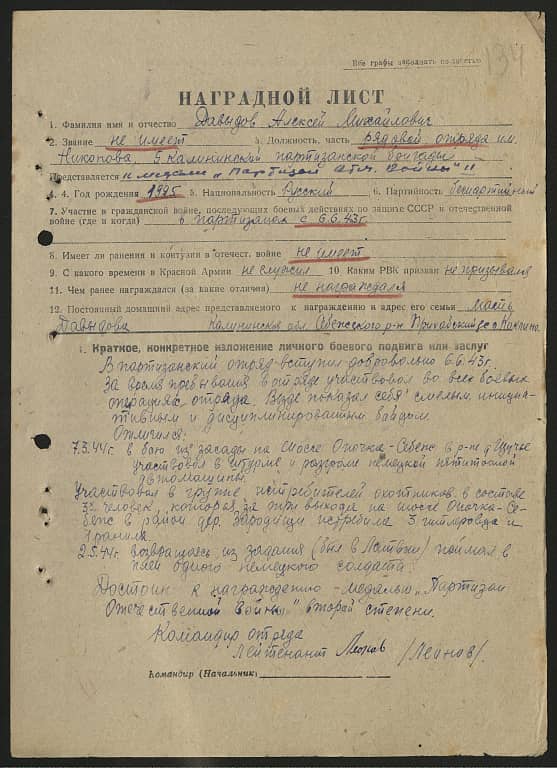 Все графы заполнять полностью
134
НАГРАДНОЙ ЛИСТ
1. Фамилия имя и отчество Давыдов Алексей Михайлович
2. Звание не имеет 3. Должность, часть рядовой отряда им.
Никонова, 5 Калининский партизанской бригады
Представляется к медали „Партизан Отеч. Войны"
4. 4. Год рождения 1925 5. Национальность Русский 6. Партийность
7. Участие в гражданской войне, последующих боевых действиях по защите СССР и отечественной
войне (где и когда) в партизанах с 6.6.43г.
8. Имеет ли ранения и контузии в отечест. войне не имеет
9. С какого времени в Красной Армии не служил 10 Каким РВК призван не призывался
11. Чем ранее награждался (за какие отличия) не награждался
12. Постоянный домашний адрес представляемого к награждению и адрес его семьи Мать
Давыдова Калининская обл. Себежского р-н
I. Краткое, конкретное изложение личного боевого подвига или заслуг
В партизанский отряд вступил добровольно 6.6.43г.
За время пребывания в отряде участвовал во всех боевых
операциях отряда. Везде показал себя смелым, инициа-
тивным и дисциплинированным бойцом.
Отличился:
7.3.44г. в бою из засады на шоссе Опочка-Себеж в р-не д. Щучье
участвовал в штурме и разгроме немецкой пятитонной
автомашины.
Участвовал в группе истребителей охотников в составе
3х человек, которая за три выхода на шоссе Опочка-Се-
беж в район дер. Зародищи истребила 3 гитлеровца и
1 ранила.
2.5.44г. возвращаясь из задания (был в Латвии) поймал в
плен одного немецкого солдата.
Достоин к награждению - медалью „Партизан
Отечественной Войны" второй степени.
Командир отряда
Лейтенант
Командир (Начальник)